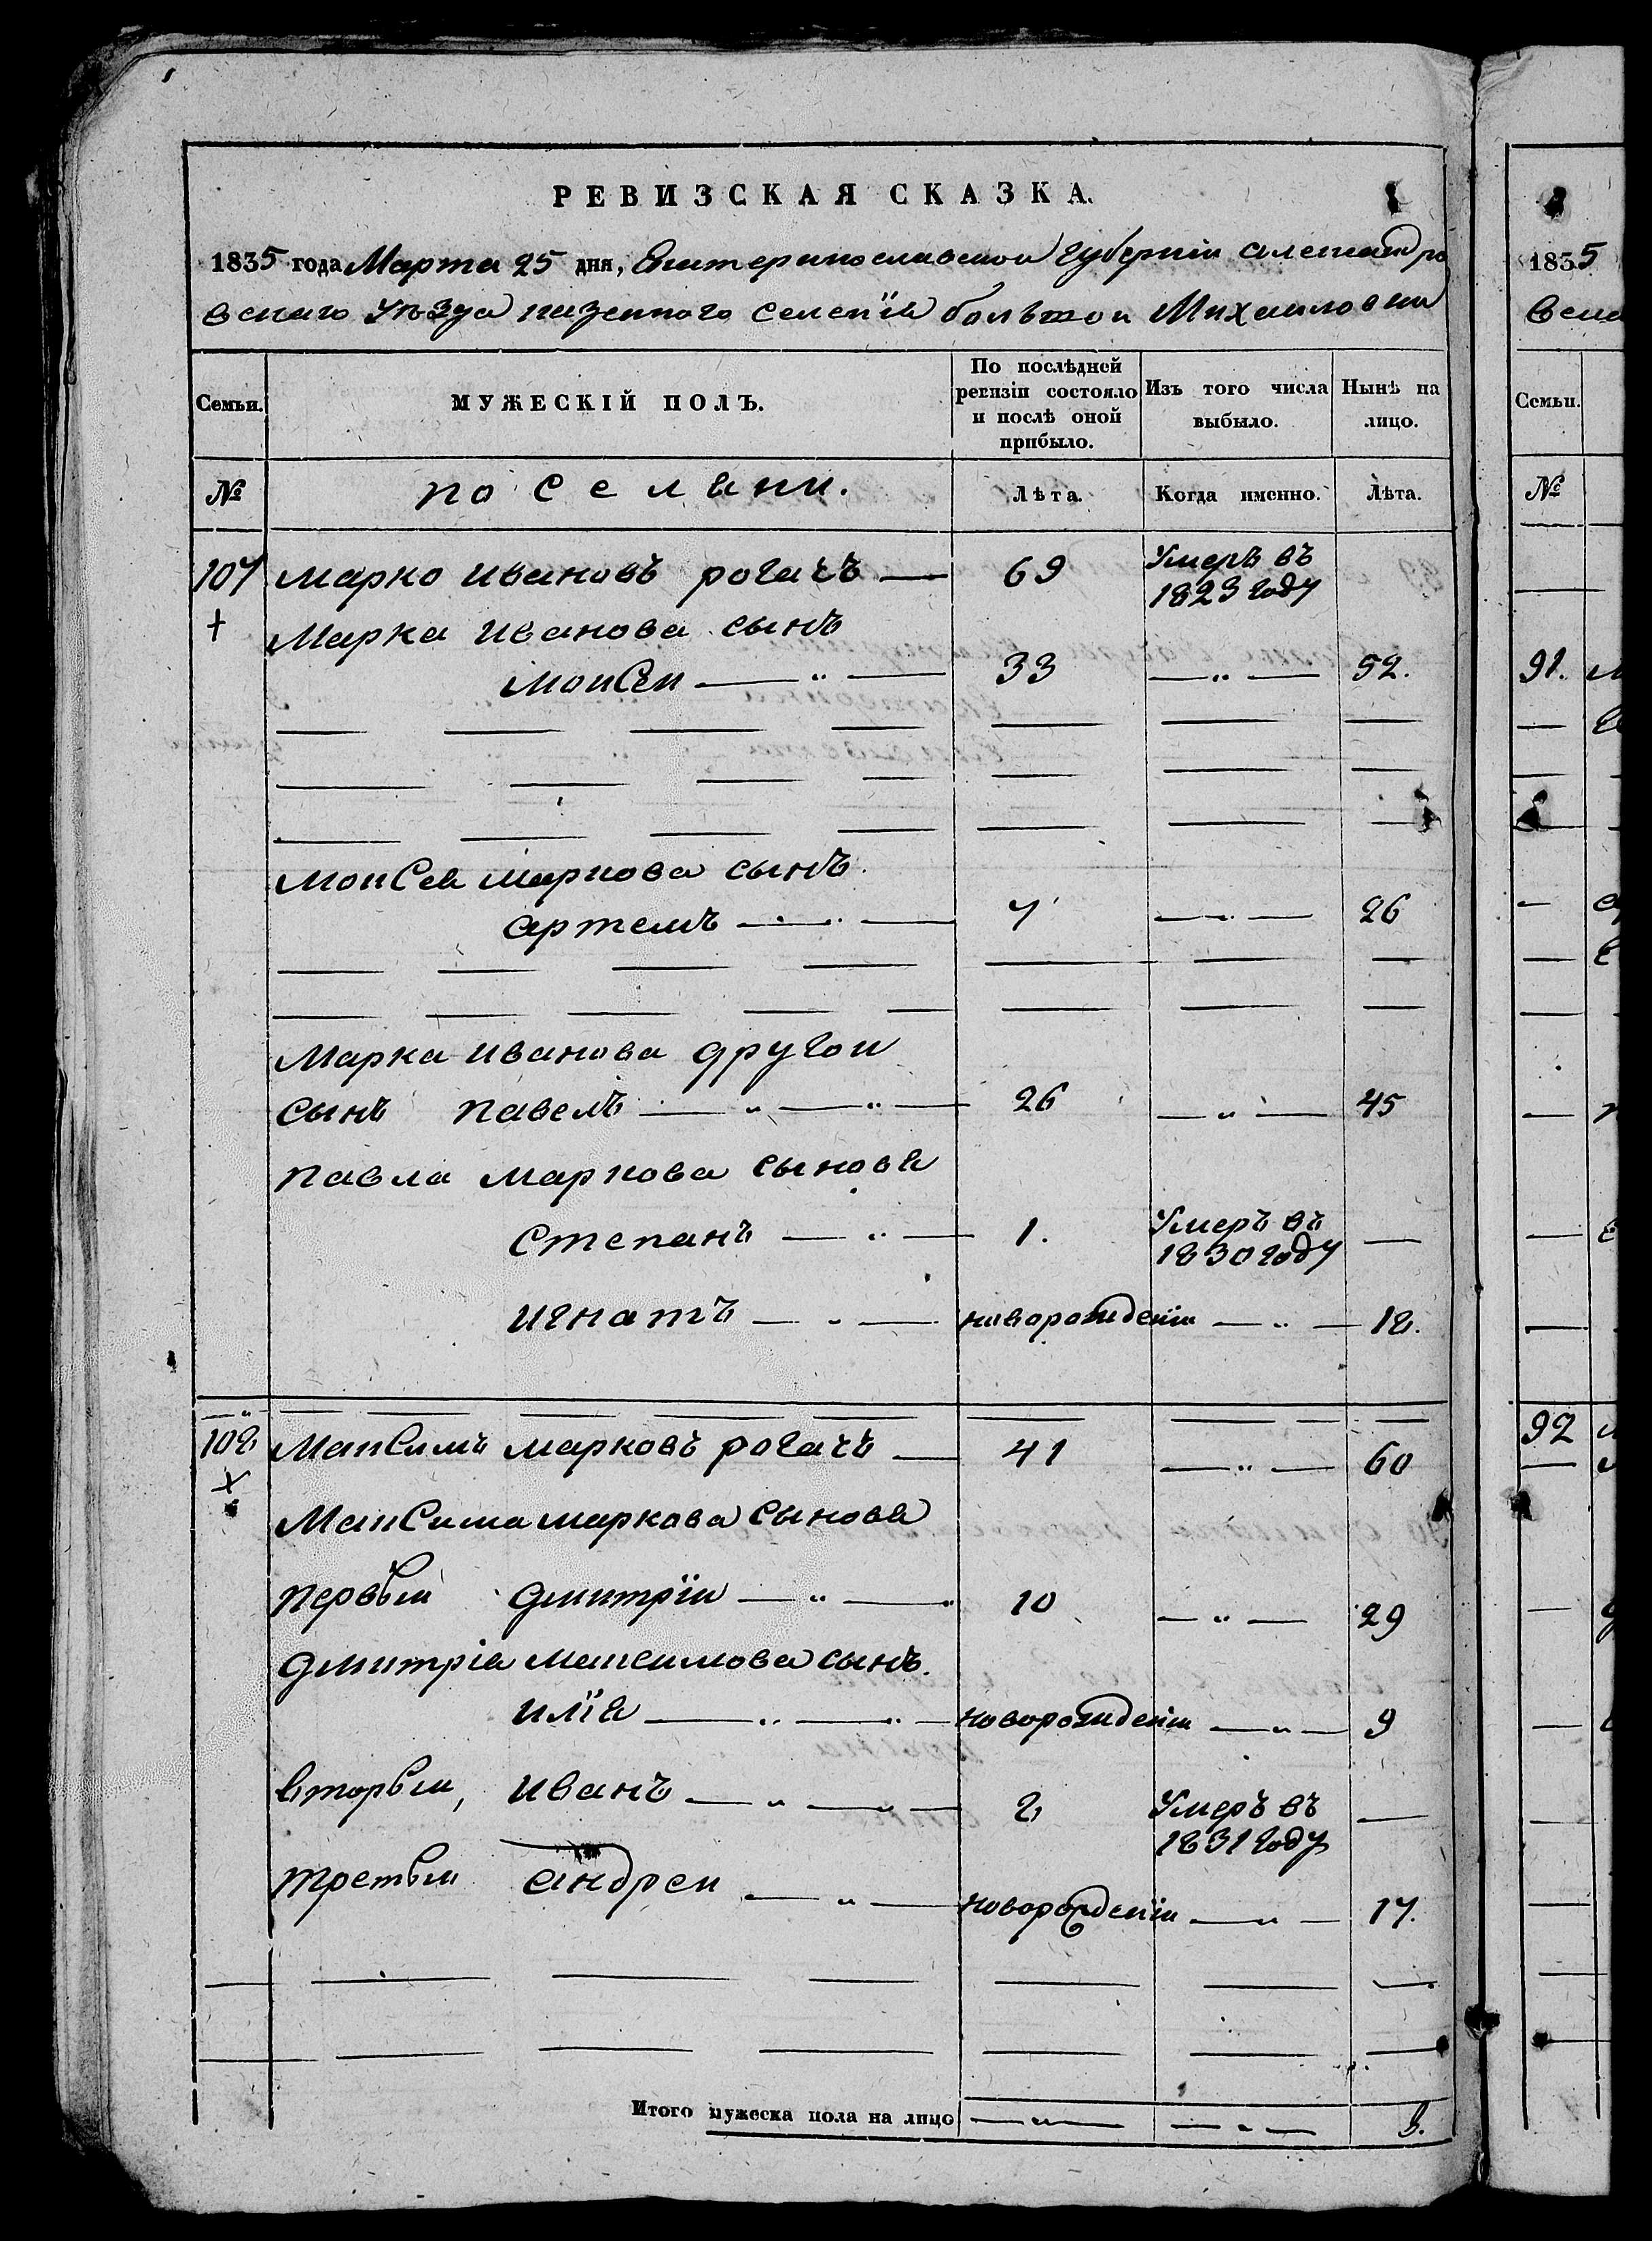 РЕВИЗСКАЯ СКАЗКА.
1835 года Марта 25 дня, Екатеринославской Губернiи Александро
вскаго Уѣзда казенного селенiя большой Михаиловки
Семьи. МУЖЕСКІЙ ПОЛЪ. По послѣдней ревизіи состояло и послѣ оной прибыло. Изъ того числа выбыло. Нынѣ на лицо.
№ поселяни. Лѣта. Когда именно. Лѣта.
107 Марко Ивановъ рогачъ — 69 Умеръ въ
1823 году
Марка Иванова сынъ
Моисеи — " — 33 — " — 52.
Моисея Маркова сынъ
артемъ — " — 7 — " — 26
Марка Иванова другои
сынъ павелъ — " — " — 26 — " — 45
павла Маркова сыновя
Степанъ — " — 1. Умеръ въ —
1830 году
игнатъ — " — новорожденïи — " — 18.
108 Максимъ Марковъ рогачъ — 41 — " — 60
Максима Маркова сыновя
первыи дмитрïи — " — 10 — " — 29
дмитрiя Максимова сынъ.
илïя — " — " — новорожденïи — " — 9
вторыи, иванъ — " — " — 2 Умеръ въ —
1831 году
третыи андреи — " — новорожденïи — " — 17.
Итого мужеска пола на лицо — " — — " — 8.
1835
Семьи.
№
91.
92